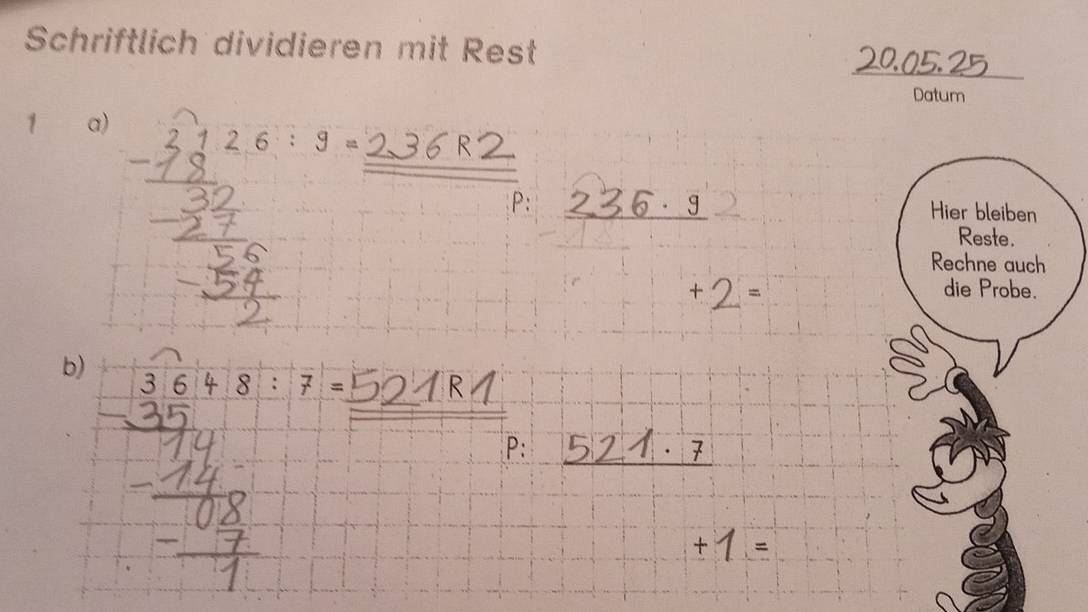 Schriftlich dividieren mit Rest
20.05.25
Datum
1 a) 2126 : 9 = 236 R2
-18
32
-27
56
-54
2
P: 236 · 9
+2 =
Hier bleiben
Reste.
Rechne auch
die Probe.
b) 3648 : 7 = 521 R1
-35
14
-14
08
-7
1
P: 521 · 7
+1 =